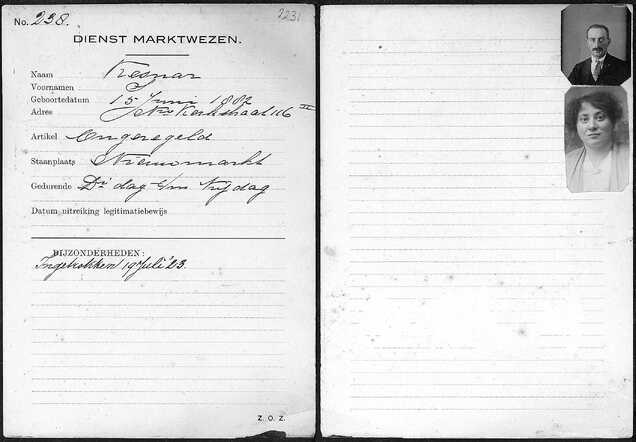 No. 238.
2231
DIENST MARKTWEZEN.
Naam Kesnar
Voornamen S
Geboortedatum 15 Juni 1882
Adres Nwe Kerkstraat 116 II
Artikel Ongeregeld
Staanplaats Nieuwmarkt
Gedurende Di dag t/m Vrijdag
Datum uitreiking legitimatiebewijs
BIJZONDERHEDEN:
Ingetrokken 19 Juli '23.
Z. O. Z.